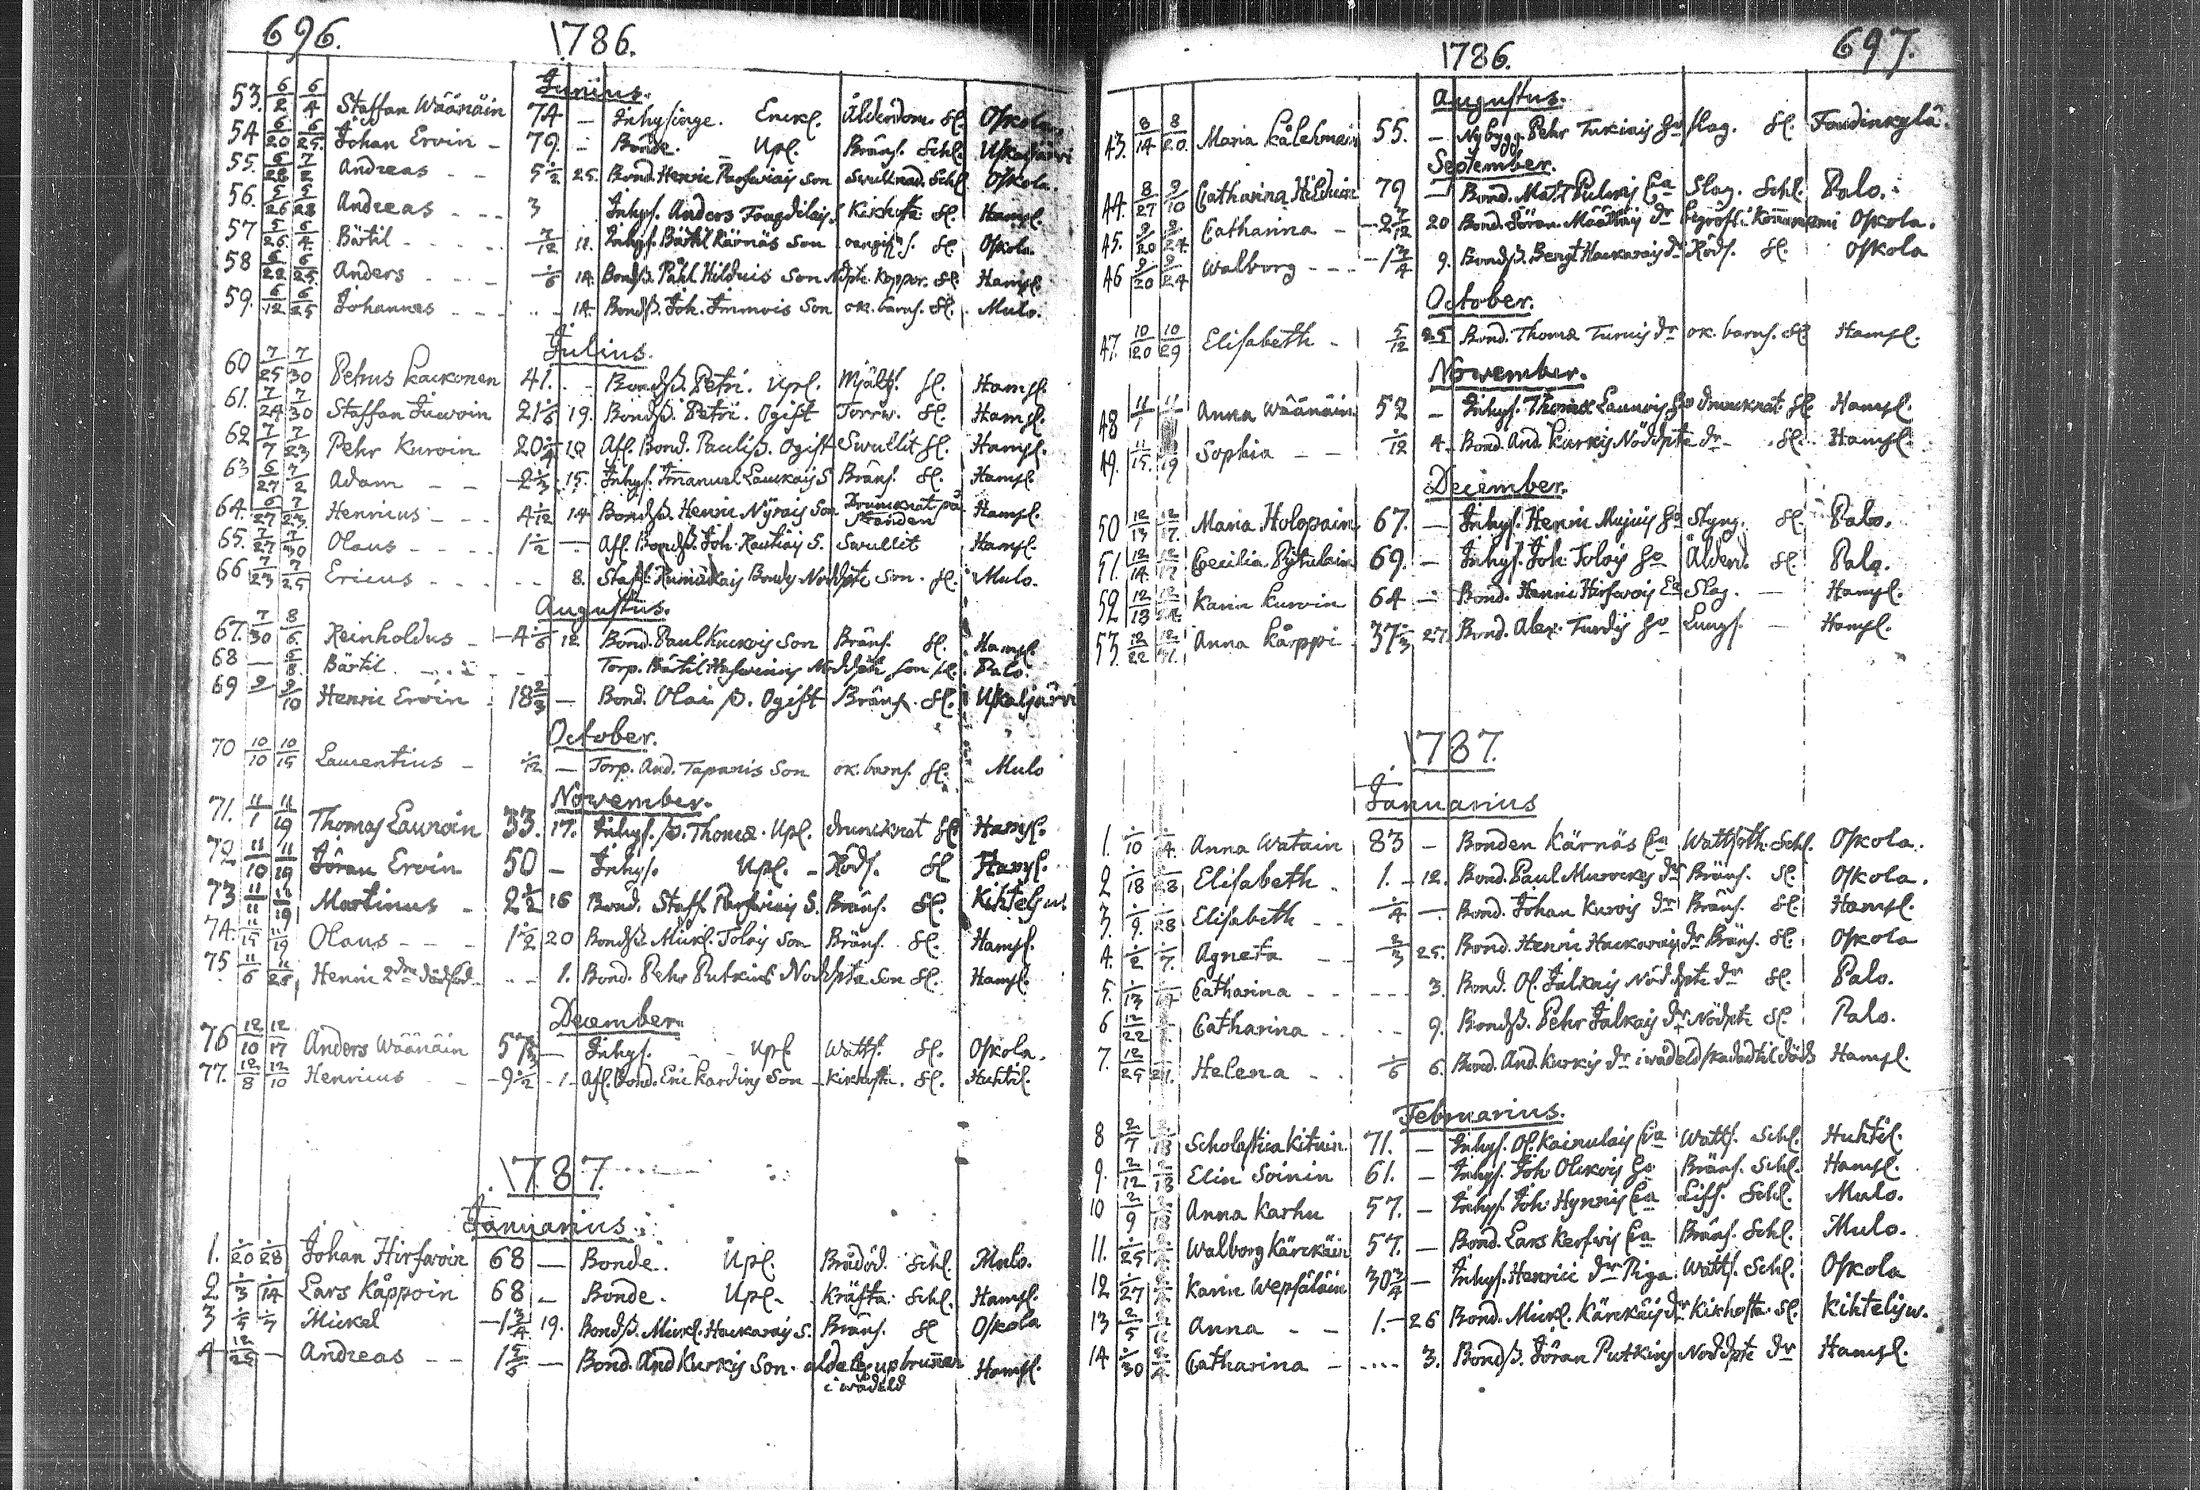 696. 1786.
Junius.
53. 6/2 6/4 Staffan Wäänäin 74 — Inhysinge. Enckl. Ålderdom. Sl. Oskola.
54 6/20 6/25. Johan Ervin - 79. - Bonde. Upl. Bräns. Schl. Uskaljärvi
55. 6/28 7/2 Andreas - - 5 1/2 25. Bond. Henric Parfwiais Son Swullnad. Schl. Oskola.
56. 5/26 5/28 Andreas - - - 3 Inhys. Anders Fougdilais S. Kikhosta Sl. Hamsl.
57 5/26 6/4. Bärtil - - - - 7/12 11. Inhys. Bärtil Kärnäs Son Sl. Oskola.
58 6/22 6/25. Anders - - - 1/6 14. Bondß. Påhl Hilduis Son Nödpte. Koppor. Sl. Hamsl.
59. 6/12 6/25 Johannes - - - - - - 14. Bondß. Joh. Immois Son ok. barns. Sl. Mulo.
Julius.
60 7/25 7/30 Petrus Kackonen 41. - - Bondß. Petri. Upl. Mjälts. Sl. Hamsl.
61. 7/24 7/30 Staffan Juwoin 21 1/6 19. Bondß. Petri. Ogift Torrw. Sl. Hamsl.
62 7/7 7/23 Pehr Kuroin 20 1/4 10 Afl. Bond. Pauli ß. Ogift Swullit Sl. Hamsl.
63 6/27 7/2 Adam - - 2 1/3 15. Inhys. Imanuel Lauckais S Bräns. Sl. Hamsl.
64. 6/27 7/23. Henricus - - - 4 1/12 14 Bondß. Henric Nÿrois Son Druncknat på Stranden Hamsl.
65. 7/27 7/30 Olaus - - - - 1 1/2 — Afl. Bondß. Joh. Rautiais S. Swullit Hamsl.
66 7/23 7/25 Ericus - - - - - 8. Staff. Bonds Nöddpte Son. Sl. Mulo.
Augustus.
67. 7/30 8/6 Reinholdus - 4 1/6 12 Bond. Paul Kuckois Son Bräns. Sl. Hamsl
68 — 8/8 Bärtil - - - Torp. Bärtil Nöddöpte Son Sl. Palo.
69 9/ 9/10 Henric Ervin - 18 2/3 — Bond. Olai ß. Ogift Bräns. Sl. Uskaljärvi
October.
70 10/10 10/15 Laurentius - 1/12 — Torp. And. Tapanis Son ok. barns. Sl. Mulo
November.
71. 11/1 11/19 Thomas Lauroin 33. 17. Inhys. ß. Thomæ. Upl. druncknat Sl. Hamsl.
72 11/10 11/19 Jöran Ervin 50 — Inhys. Upl. - Röds. Sl Hamsl.
73 11/11 11/19 Martinus - 2 1/2 16 Bond. Staff. Parfwiais S. Bräns. Sl. Kihteljw.
74. 11/15 11/19 Olaus - - - 1 1/2 20 Bondß. Mickl. Tolois Son Bräns. Sl. Hamsl.
75 11/6 11/26 Henric 2dra dödföd - - - 1. Bond. Pehr Putkius Nöddpte Son Sl. Hamsl.
December.
76 12/10 12/17 Anders Wäänäin 57 2/3 — Inhys. - - Upl Watts. Sl. Oskola.
77. 12/8 12/10 Henricus - - 9 1/2 1 Afl. Bond. Eric Kardius Son - Kikhosta. Sl. Huhtil.
1787.
Januarius.
1. 1/20 1/28 Johan Hirfwoin 68 — Bonde. Upl. Brådöd. Schl. Mulo.
2 1/3 1/14 Lars Kåppoin 68 — Bonde. Upl. Kräfta. Schl. Hamsl.
3 1/5 1/7 Mickel - 1 3/4 19. Bondß. Mickl. Hackarais S. Bräns. Sl Oskola
4 12/25 — Andreas - - 1 5/6 — Bond. And Kurkis Son. aldeles upbrunnen i wådeld Hamsl.
1786. 697.
Augustus.
43. 8/14 8/20 Maria Kålehmain 55. — Nybygg. Pehr Tukiais Ho slag. Sl. Foudinkylä.
September.
44. 8/27 9/10 Catharina Hilduin 79 — Bond. Matt Pulius Ea Slag. Schl. Palo.
45. 9/20 9/24. Catharina - - 2 7/12 20 Bond. Jöran Määttäis dr Oskola.
46 9/20 9/24 Walborg - - - 1 3/4 9. Bondß. Bengt Hackarais dr Röds. Sl. Oskola
October.
47. 10/20 10/29 Elisabeth - 5/12 25 Bond. Thomæ Turuis dr ok. barns. Sl. Hamsl.
November.
48 11/1 11/ Anna Wäänäin 52 — Inhys. Thomæ Lauroois Ho drunknat. Sl. Hamsl.
49. 11/15 11/19 Sophia - - 1/12 4. Bond. And. Kurkis Nöddpte dr - Sl. Hamsl.
December.
50 12/13 12/17. Maria Holopain 67. — Inhys. Henric Mujuis Ho Styng. Sl. Palo.
51. 12/14 12/17 Cecilia Pÿtulain 69. — Inhys. Joh. Tolois Ho Ålderd. Sl. Palo.
52 12/18 12/24 Karin Kurvin 64 — Bond. Henric Hirfwois Ea Slag. — Hamsl.
53. 12/22 12/31. Anna Kårppi 37 1/3 27. Bond. Alex. Turdis Ho Lungs. — Hamsl.
1787.
Januarius
1. 1/10 1/14. Anna Watain 83 — Bonden Kärnäs Ea Wattsoth. Schl. Oskola.
2 1/18 1/28 Elisabeth . 1. - 12. Bond. Paul Murockis dr Bräns. Sl. Oskola.
3. 1/9. 1/28 Elisabeth - - 1/4 — Bond. Johan Kurois dr Bräns. Sl. Hamsl.
4. 1/2 1/7. Agneta - - 2/3 25. Bond. Henric Hackarais dr Bräns. Sl. Oskola
5. 1/13 Catharina - - - - - 3. Bond. Ol. Jalkais Nöddpte dr Sl. Palo.
6 12/22 Catharina - - - - 9. Bondß. Pehr Jalkais dr Nödpte Sl. Palo.
7. 12/25 1/21. Helena - - 1/6 6. Bond. And. Kurkis dr i wådeld skadad til döds Hamsl.
Februarius.
8 2/7 2/18 Scholastica Kituin. 71. — Inhys. Ol. Kainulais Ea Watts. Schl. Huhtil.
9. 2/12 2/18 Elin Soinin 61. — Inhys. Joh. Olckois Ho Bräns. Schl. Hamsl.
10 2/9 Anna Karhu 57. — Inhys. Joh. Hynnis Ea Lifs. Schl. Mulo.
11. 1/25 Walborg Kärckäin 57. — Bond. Lars Kerfwis Ea Bräns. Schl. Mulo.
12 1/27 Karin Wepsäläin 30 3/4 — Inhys. Henrici dr Piga. Watts. Schl. Oskola
13 2/5 Anna - - 1. - 26 Bond. Mickl. Kärckäis dr Kikhosta. Sl. Kihtelisw.
14 1/30 Catharina - - - - - 3. Bondß. Jöran Putkius Nöddpte dr Hamsl.